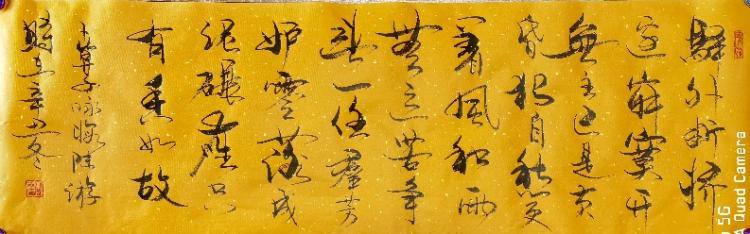 驛外断桥
边寂寞开
無主已是黄
昏独自愁更
著風和雨
無意苦争
春一任群芳
妒零落成
泥碾作塵只
有香如故
卜算子咏梅陆游
時在辛丑冬
5G
Quad Camera